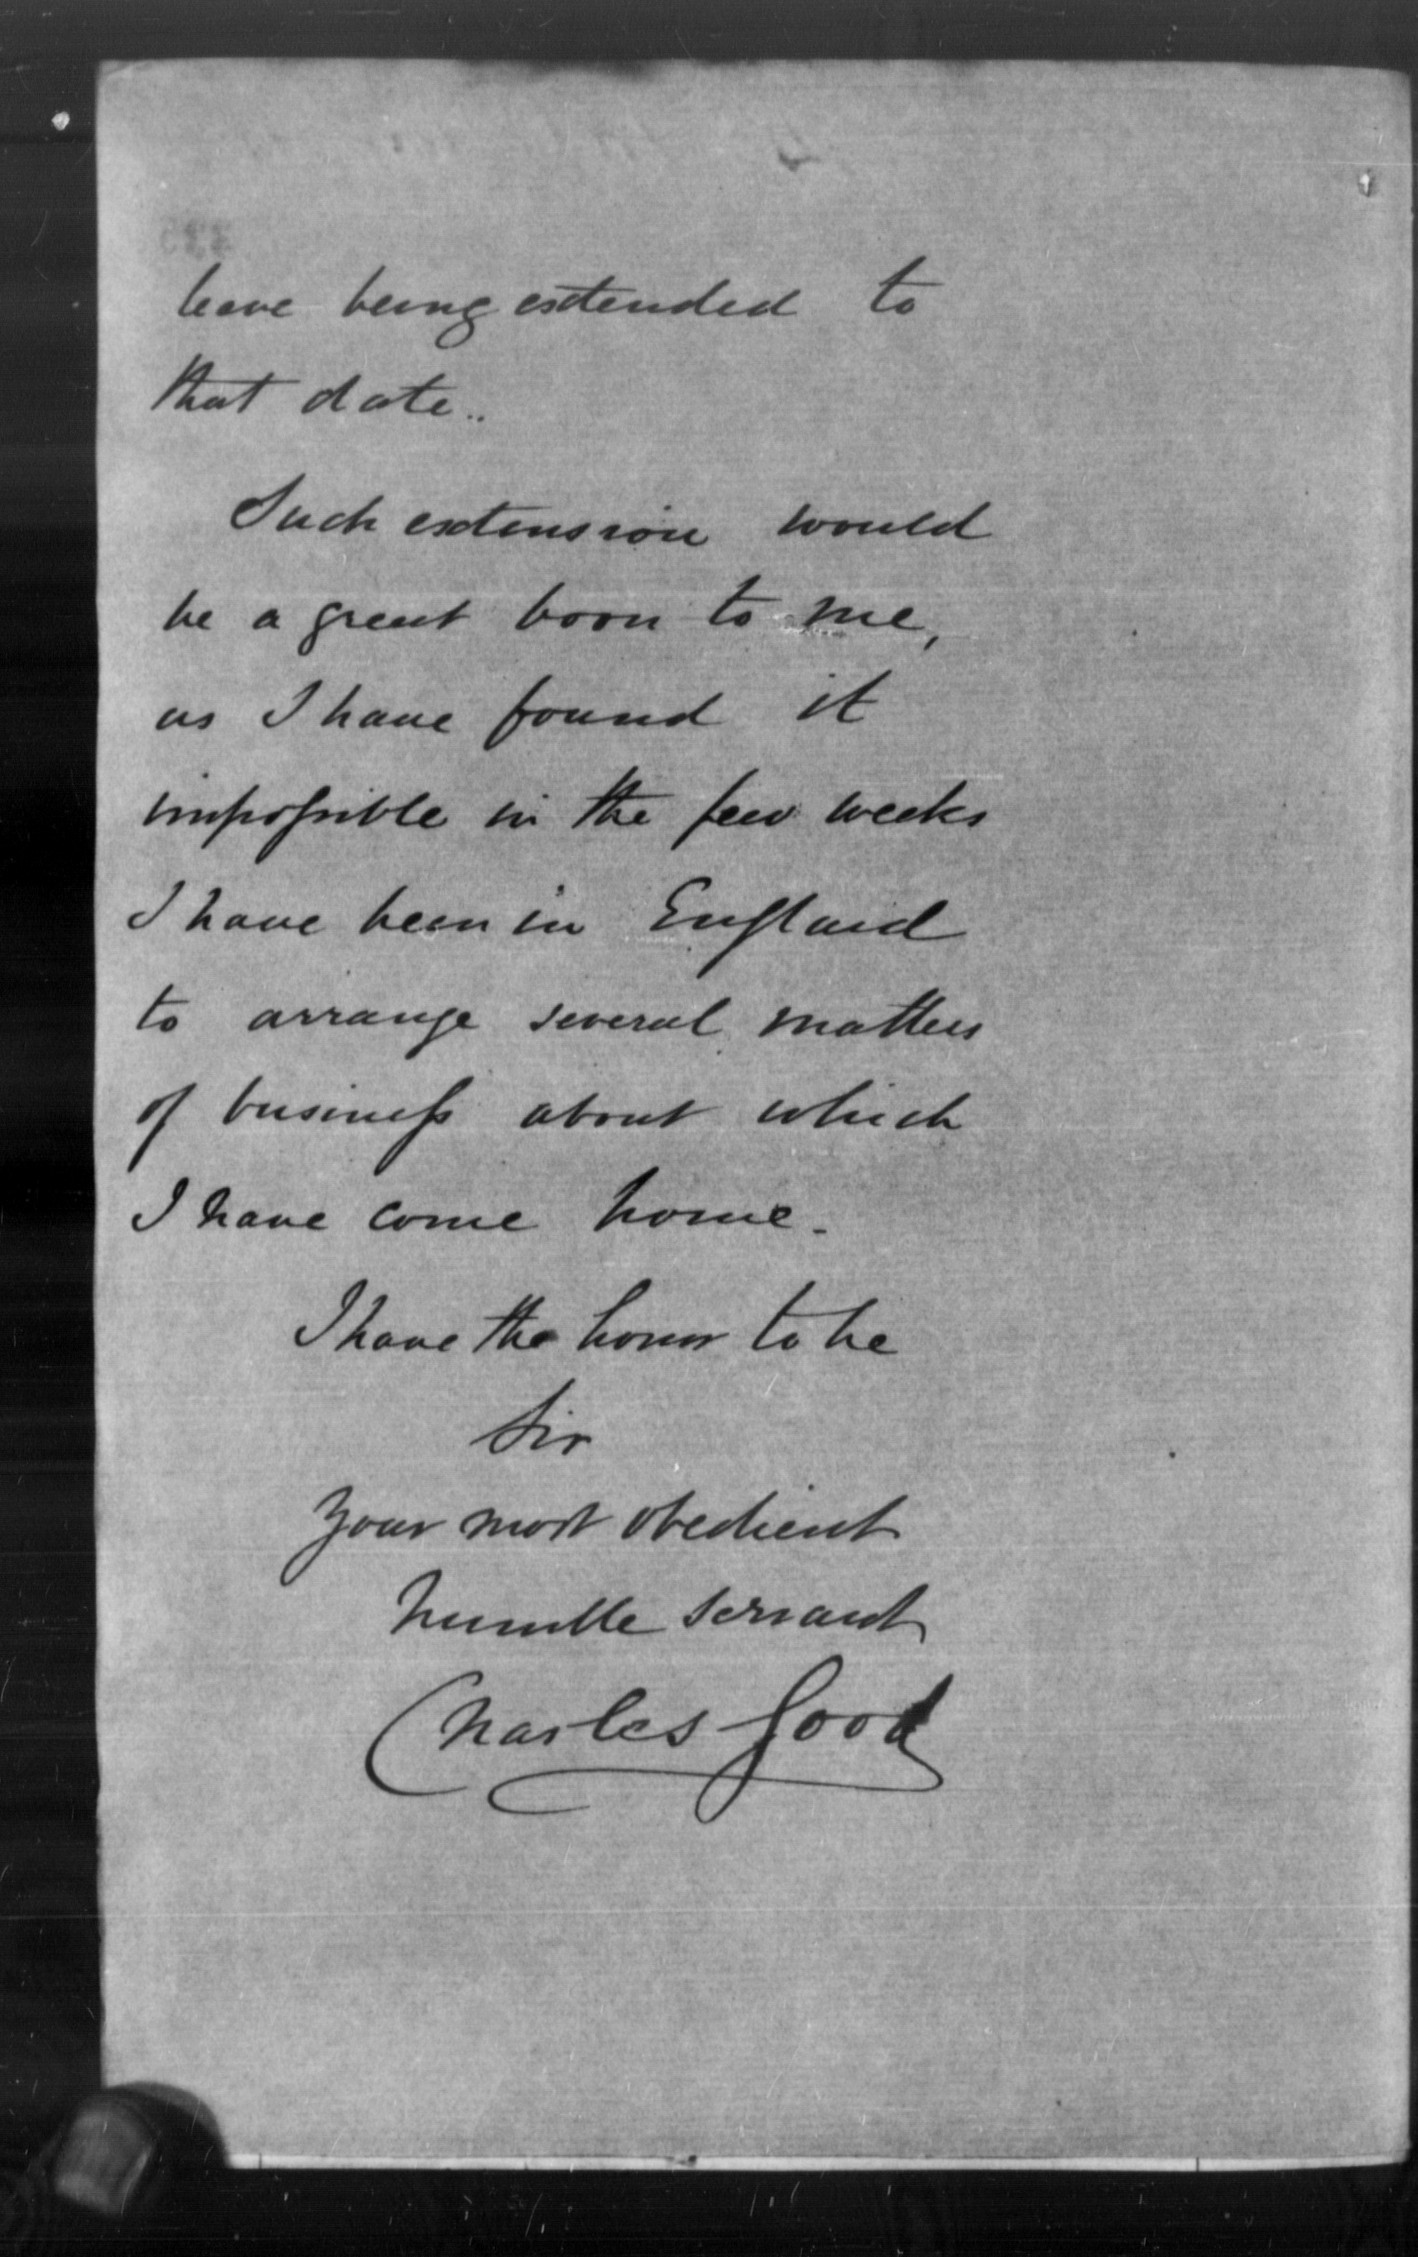 leave being extended to
that date..
Such extension would
be a great boon to me,
as I have found it
impossible in the few weeks
I have been in England
to arrange several matters
of business about which
I have come home.
I have the honor to be
Sir
Your most obedient
humble servant
Charles Good